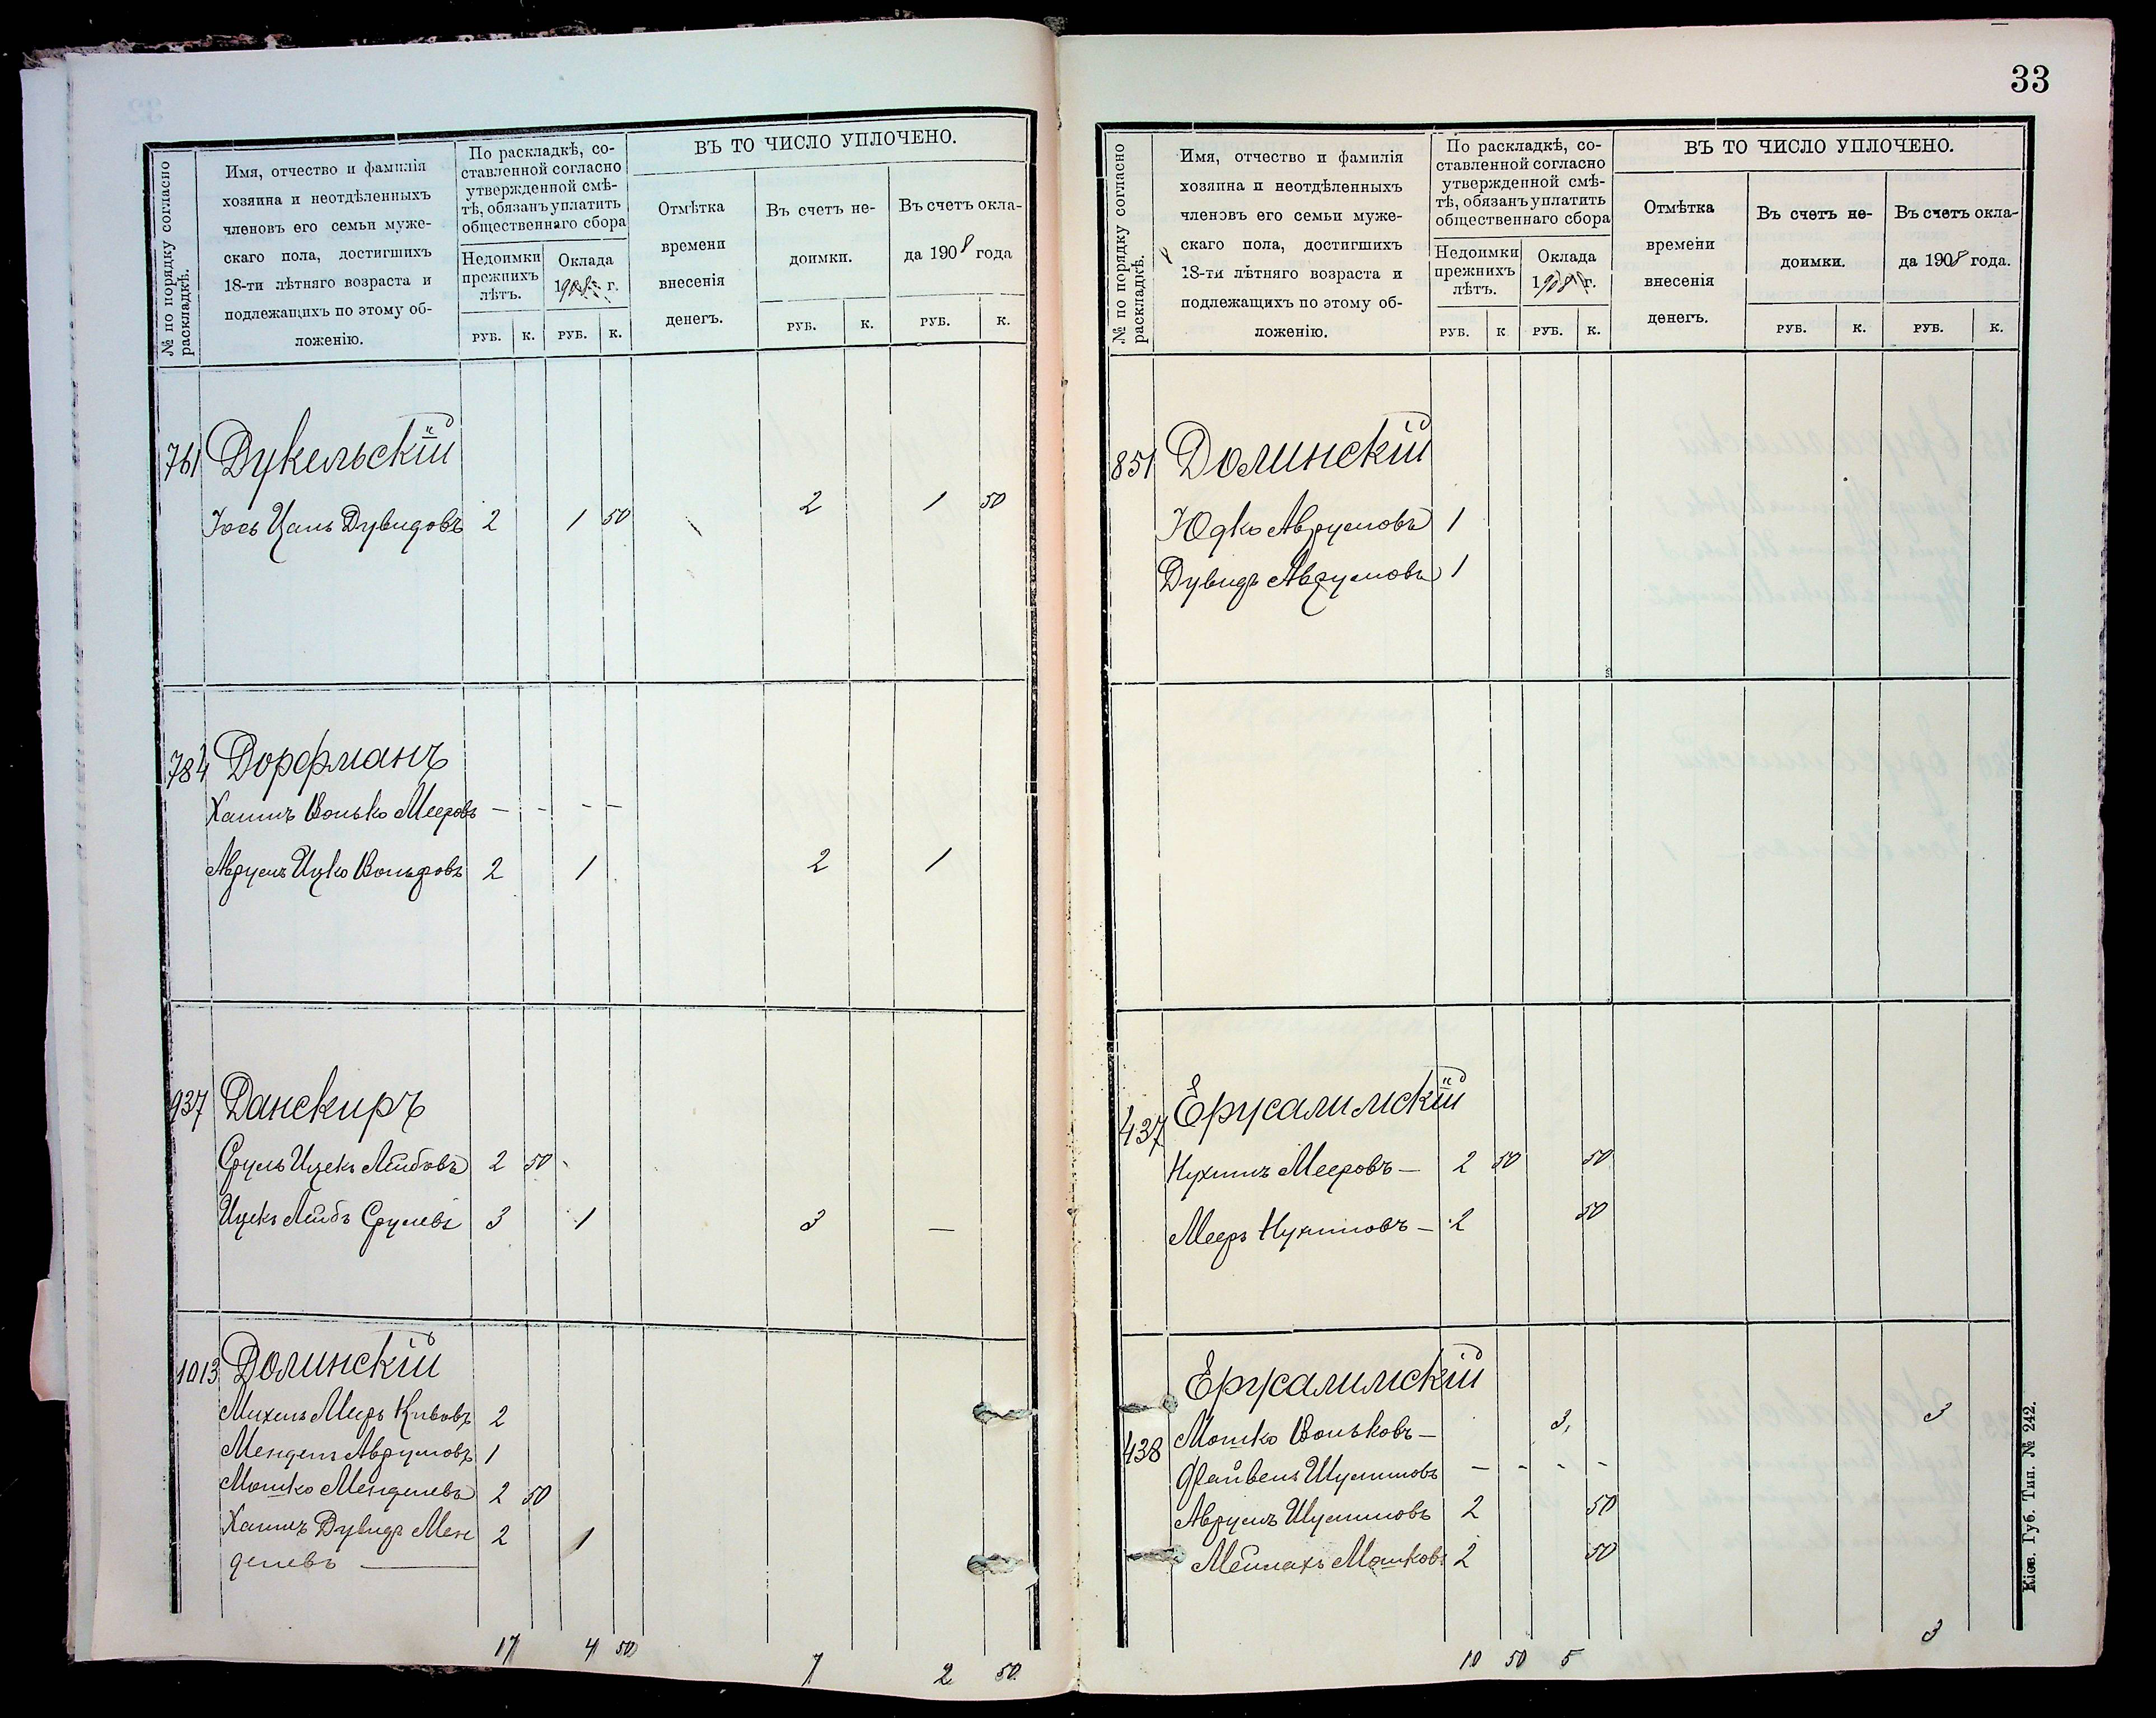 № по порядку согласно
раскладкѣ.
Имя, отчество и фамилія
хозяина и неотдѣленныхъ
членовъ его семьи муже-
скаго пола, достигшихъ
18-ти лѣтняго возраста и
подлежащихъ по этому об-
ложенію.
По раскладкѣ, со-
ставленной согласно
утвержденной смѣ-
тѣ, обязанъ уплатить
общественнаго сбора
Недоимки
прежнихъ
лѣтъ.
Оклада
1908 г.
ВЪ ТО ЧИСЛО УПЛОЧЕНО.
Отмѣтка
времени
внесенія
денегъ.
Въ счетъ не-
доимки.
Въ счетъ окла-
да 1908 года
РУБ. К. РУБ. К. РУБ. К. РУБ. К.
761 Дукельскій
Іось Цаль Дувидовъ 2 1 50 2 1 50
784 Дорфманъ
Хаимъ Волько Мееровъ — - - —
Аврумъ Ицко Вольфовъ 2 1 2 1
937 Данскиръ
Сруль Ицекъ Лейбовъ 2 50
Ицекъ Лейбъ Срулевъ 3 1 3 —
1013 Долинскій
Михель Меиръ Кивовъ 2
Мендель Аврумовъ 1
Мошко Менделевъ 2 50
Хаимъ Дувидъ Мен 2 1
делевъ —
17 4 50 7 2 50
33
№ по порядку согласно
раскладкѣ.
Имя, отчество и фамилія
хозяина и неотдѣленныхъ
членовъ его семьи муже-
скаго пола, достигшихъ
18-ти лѣтняго возраста и
подлежащихъ по этому об-
ложенію.
По раскладкѣ, со-
ставленной согласно
утвержденной смѣ-
тѣ, обязанъ уплатить
общественнаго сбора
Недоимки
прежнихъ
лѣтъ.
Оклада
1908 г.
ВЪ ТО ЧИСЛО УПЛОЧЕНО.
Отмѣтка
времени
внесенія
денегъ.
Въ счетъ не-
доимки.
Въ счетъ окла-
да 1908 года.
РУБ. К РУБ. К. РУБ. К. РУБ. К.
851 Долинскій
Юдко Аврумовъ 1
Дувидъ Аврумовъ 1
437 Ерусалимскій
Нухимъ Мееровъ — 2 50 50
Мееръ Нухимовъ — 2 50
Ерусалимскій
438 Мошко Вольковъ — 3, 3
Файвель Шулимовъ — - - -
Аврумъ Шулимовъ 2 50
Мейлахъ Мошковъ 2 50
10 50 5 3
Кіев. Губ. Тип. № 242.